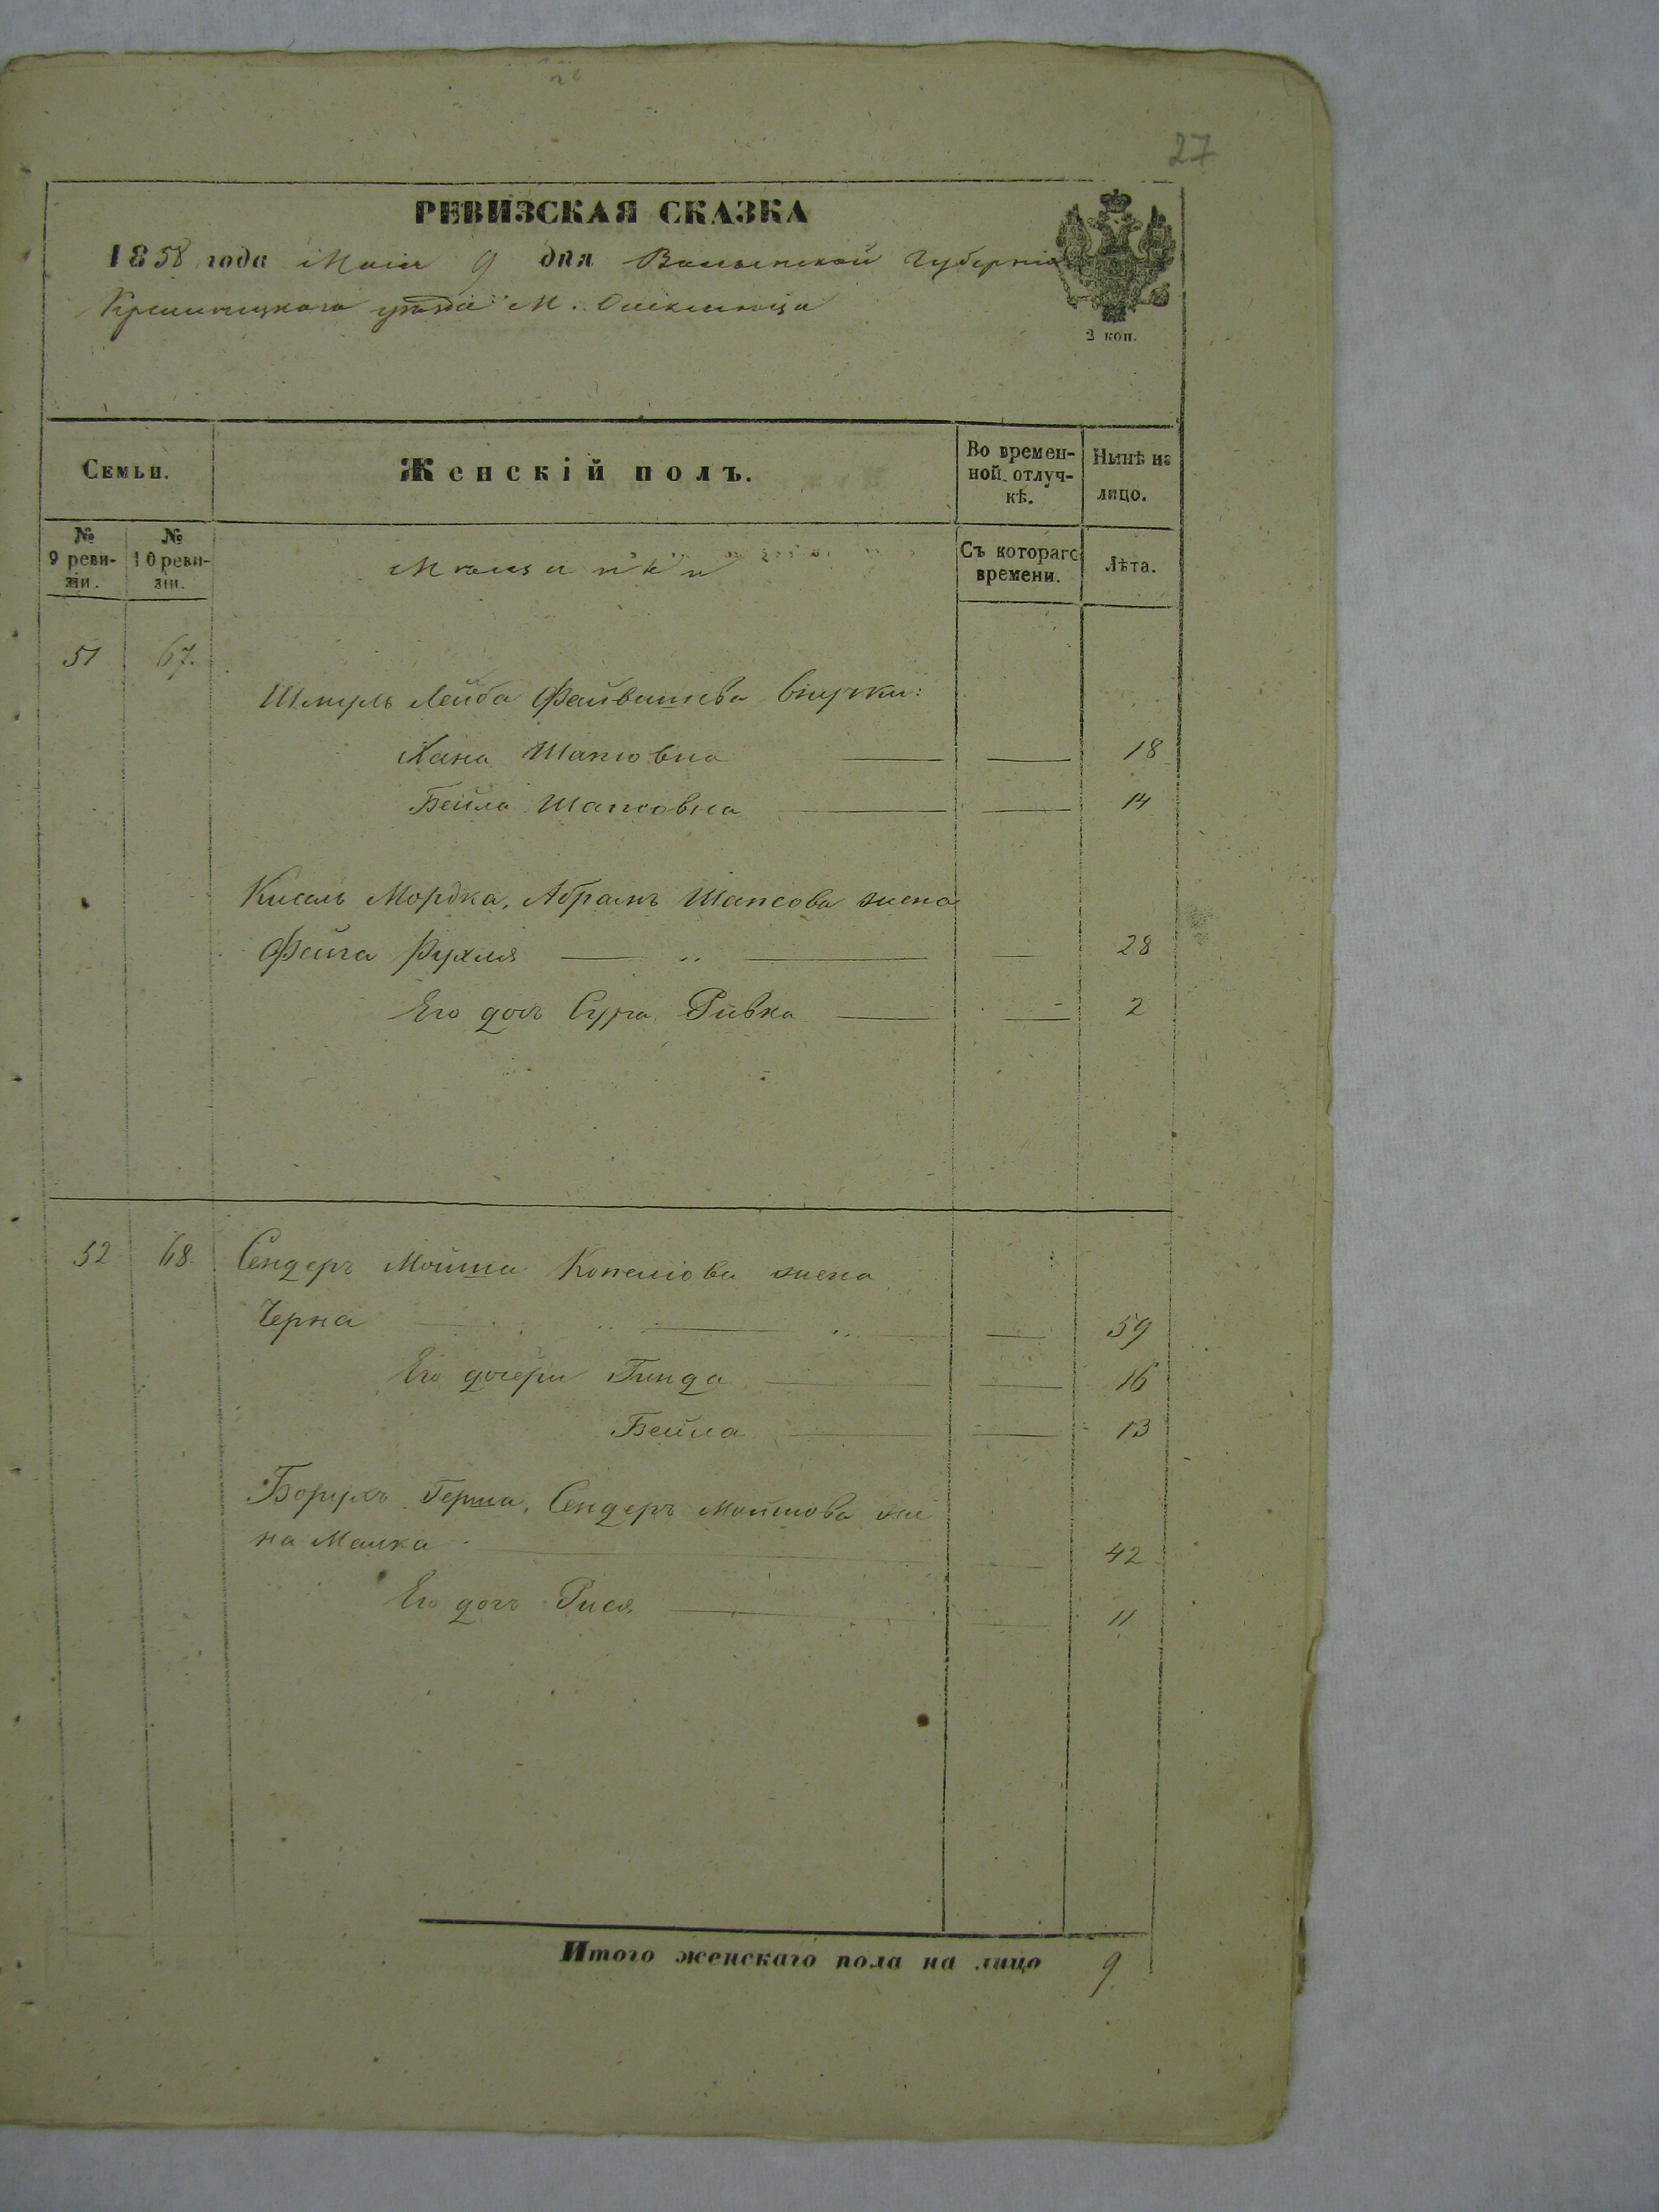 27
РЕВИЗСКАЯ СКАЗКА
1858 года Маія 9 дня Волынской Губерніи
Кременецкаго уѣзда М.
3 коп.
Семьи.
Женскій полъ.
Во времен-
ной отлуч-
кѣ.
Нынѣ на
лицо.
№
9 реви-
зіи.
№
10 реви-
зіи.
Мѣщанки
Съ котораго
времени.
Лѣта.
51 67.
Шмуль Лейба Файвишева внучки:
Хана Шапсовна — — 18
Бейла Шапсовна — — 14
Кисель Мордка, Абрамъ Шапсова жена
Фейга Рухля — „ — — 28
Его дочь Сура Ривка — — 2
52 68. Сендеръ Мойша жена
Черна — „ — „ — — 59
Его дочери Гинда — — 16
Бейла — — 13
Борухъ Герша, Сендеръ Мойшова же
на Малка — — 42
Его дочь Рися — — 11
Итого женскаго пола на лицо 9